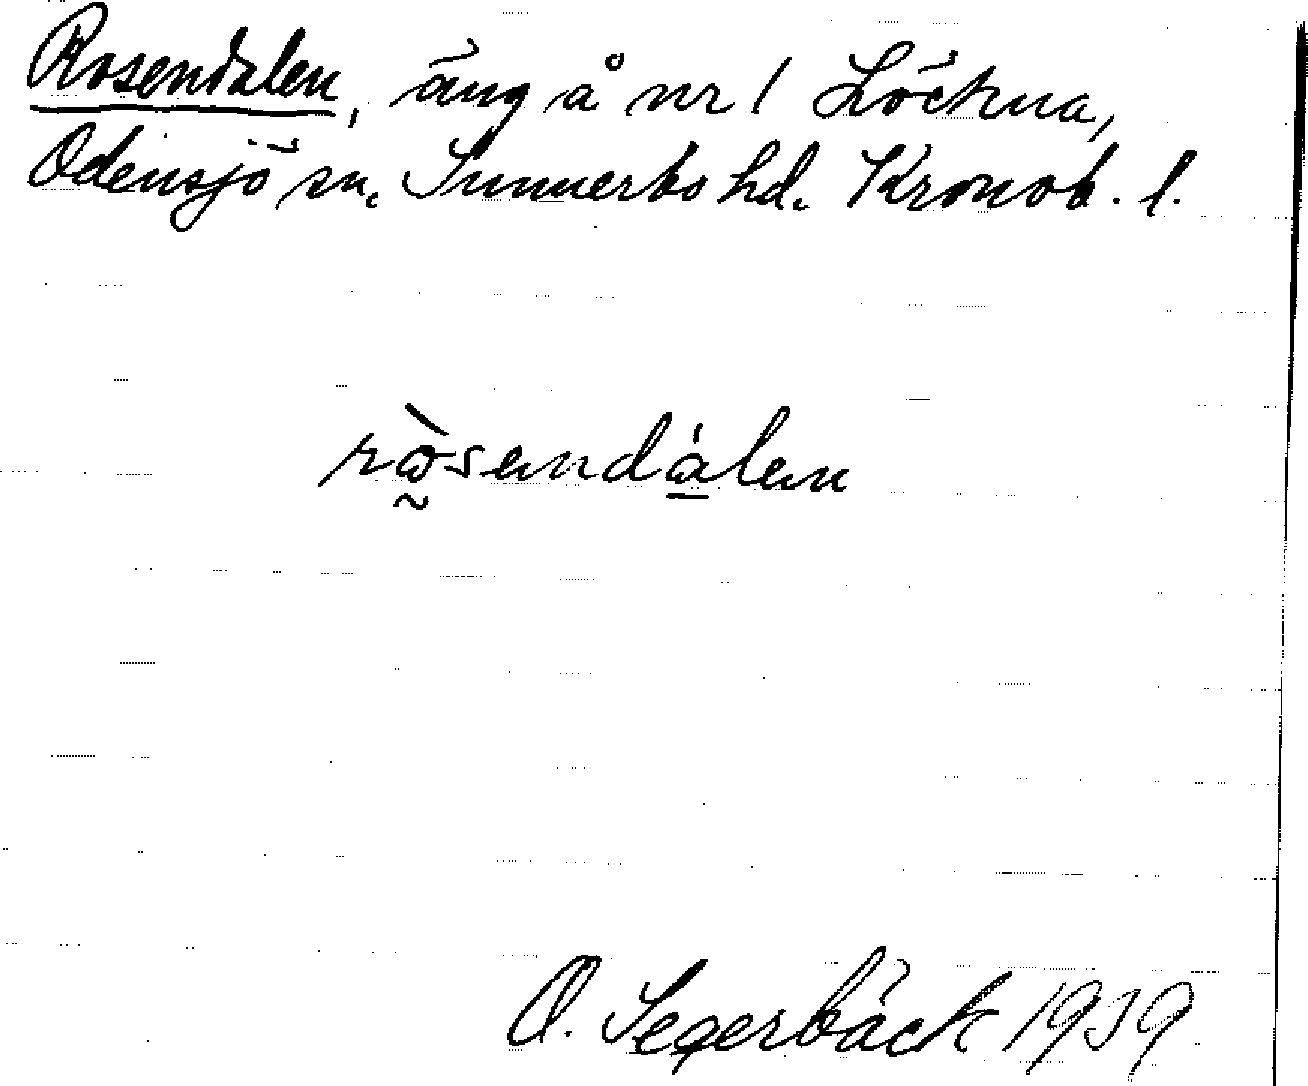 Rosendalen, äng å nr 1 Löckna,
Odensjö sn. Sunnerbo hd. Kronob. l.
rὼsendálen
O. Segerbäck 1939